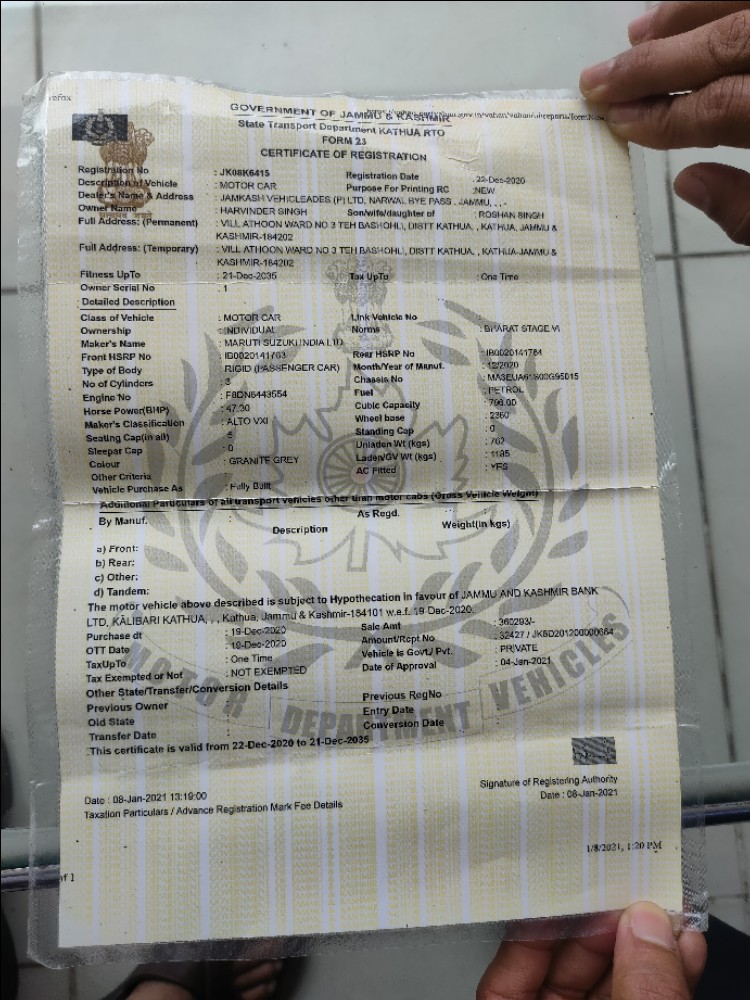 refox
GOVERNMENT OF JAMMU & KASHMIR
State Transport Department KATHUA RTO
FORM 23
CERTIFICATE OF REGISTRATION
Registration No : JK08K6415 Registration Date : 22-Dec-2020
Description of Vehicle : MOTOR CAR Purpose For Printing RC : NEW
Dealer's Name & Address : JAMKASH VEHICLEADES (P) LTD, NARWAL BYE PASS , JAMMU, , , -
Owner Name : HARVINDER SINGH Son/wife/daughter of : ROSHAN SINGH
Full Address: (Permanent) : VILL ATHOON WARD NO 3 TEH BASHOHLI, DISTT KATHUA, , KATHUA, JAMMU &
KASHMIR-184202
Full Address: (Temporary) : VILL ATHOON WARD NO 3 TEH BASHOHLI, DISTT KATHUA, , KATHUA-JAMMU &
KASHMIR-184202
Fitness UpTo : 21-Dec-2035 Tax UpTo : One Time
Owner Serial No : 1
Detailed Description
Class of Vehicle : MOTOR CAR Link Vehicle No
Ownership : INDIVIDUAL Norms : BHARAT STAGE VI
Maker's Name : MARUTI SUZUKI INDIA LTD
Front HSRP No : IB0020141763 Rear HSRP No : IB0020141764
Type of Body : RIGID (PASSENGER CAR) Month/Year of Manuf. : 12/2020
No of Cylinders : 3 Chassis No
Engine No Fuel : PETROL
Horse Power(BHP) : 47.30 Cubic Capacity : 796.00
Maker's Classification : ALTO VXI Wheel base : 2360
Seating Cap(in all) : 5 Standing Cap : 0
Sleeper Cap : 0 Unladen Wt (kgs) : 762
Colour : GRANITE GREY Laden/GV Wt (kgs) : 1185
Other Criteria AC Fitted : YES
Vehicle Purchase As : Fully Built
Additional Particulars of all transport vehicles other than motor cabs (Gross Vehicle Weight)
By Manuf. : As Regd. :
Description Weight(in kgs)
a) Front:
b) Rear:
c) Other:
d) Tandem:
The motor vehicle above described is subject to Hypothecation in favour of JAMMU AND KASHMIR BANK
LTD, KALIBARI KATHUA, , , Kathua, Jammu & Kashmir-184101 w.e.f. 19-Dec-2020.
Purchase dt : 19-Dec-2020 Sale Amt : 360293/-
OTT Date : 19-Dec-2020 Amount/Rcpt No
TaxUpTo : One Time Vehicle is Govt./ Pvt. : PRIVATE
Tax Exempted or Not : NOT EXEMPTED Date of Approval : 04-Jan-2021
Other State/Transfer/Conversion Details
Previous Owner Previous RegNo
Old State Entry Date
Transfer Date Conversion Date
This certificate is valid from 22-Dec-2020 to 21-Dec-2035
MOTOR DEPARTMENT VEHICLES
Signature of Registering Authority
Date : 08-Jan-2021 13:19:00 Date : 08-Jan-2021
Taxation Particulars / Advance Registration Mark Fee Details
1/8/2021, 1:20 PM
of 1